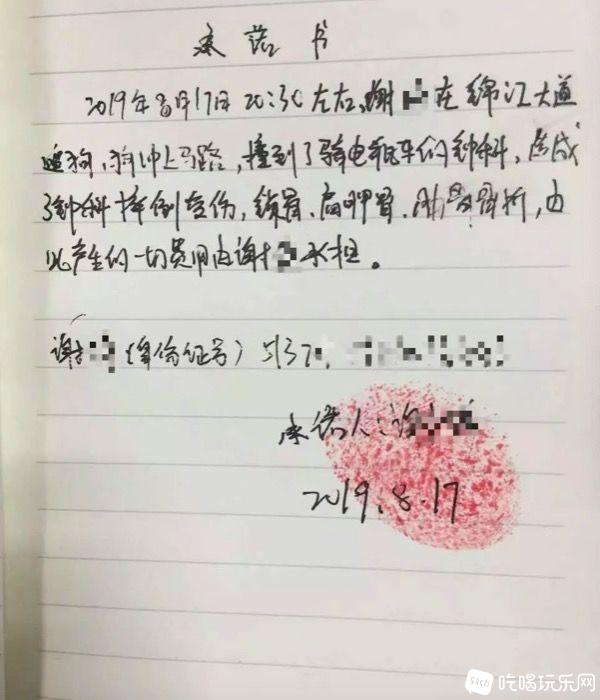 承诺书
2019年8月17日 20:30左右,谢 在锦江大道
遛狗,狗冲上马路,撞到了骑电瓶车的钟科,造成
了钟科摔倒受伤,锁骨、肩胛骨、肋骨骨折,由
此产生的一切费用由谢 承担。
谢 (身份证号)5137
承诺人:谢
2019.8.17
吃喝玩乐网